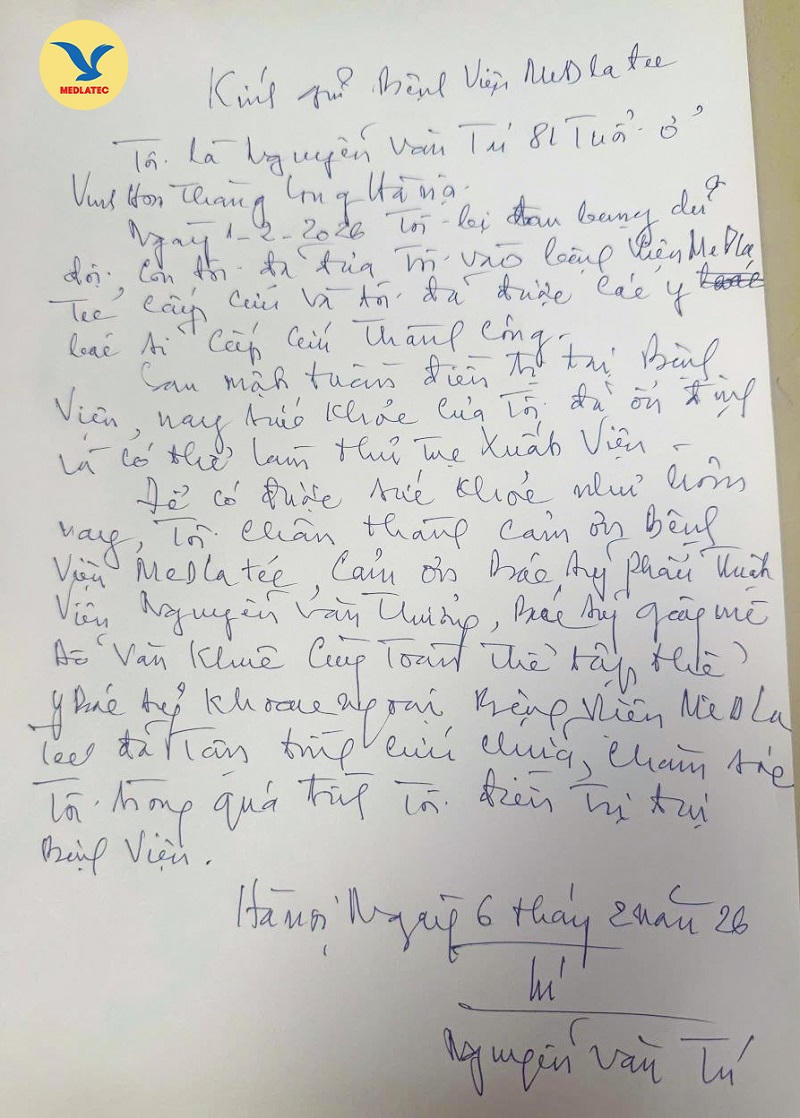 MEDLATEC
Kính gửi Bệnh Viện MeDlatec
Tôi là Nguyễn Văn Tú 81 Tuổi ở
Thăng Long Hà Nội.
Ngày 1-2-2026 Tôi bị đau bụng dữ
dội, con tôi đã đưa Tôi vào bệng Viện MeDla
Tec cấp cứu và tôi đã được các y
bác sĩ cấp cứu thành công.
Sau một tuần điều trị tại Bệng
Viện, nay sức khỏe của Tôi đã ổn định
và có thể làm thủ tục Xuất Viện -
Để có được sức khỏe như hôm
nay, Tôi chân thàng cảm ơn Bệng
Viện MeDlatec, cảm ơn Bác sỹ phẫu thuật
Viên Nguyễn Văn Thưởng, Bác sỹ gây mê
Đỗ Văn Khuê cùng Toàn Thể tập thể
y Bác sỹ khoa ngoại Bệng Viện MeDla
Tec đã Tận tìng cứu chữa, chăm sóc
Tôi trong quá trìng Tôi điều Trị tại
Bệng Viện.
Hà nội Ngày 6 tháng 2 năm 26
Tú
Nguyễn Văn Tú